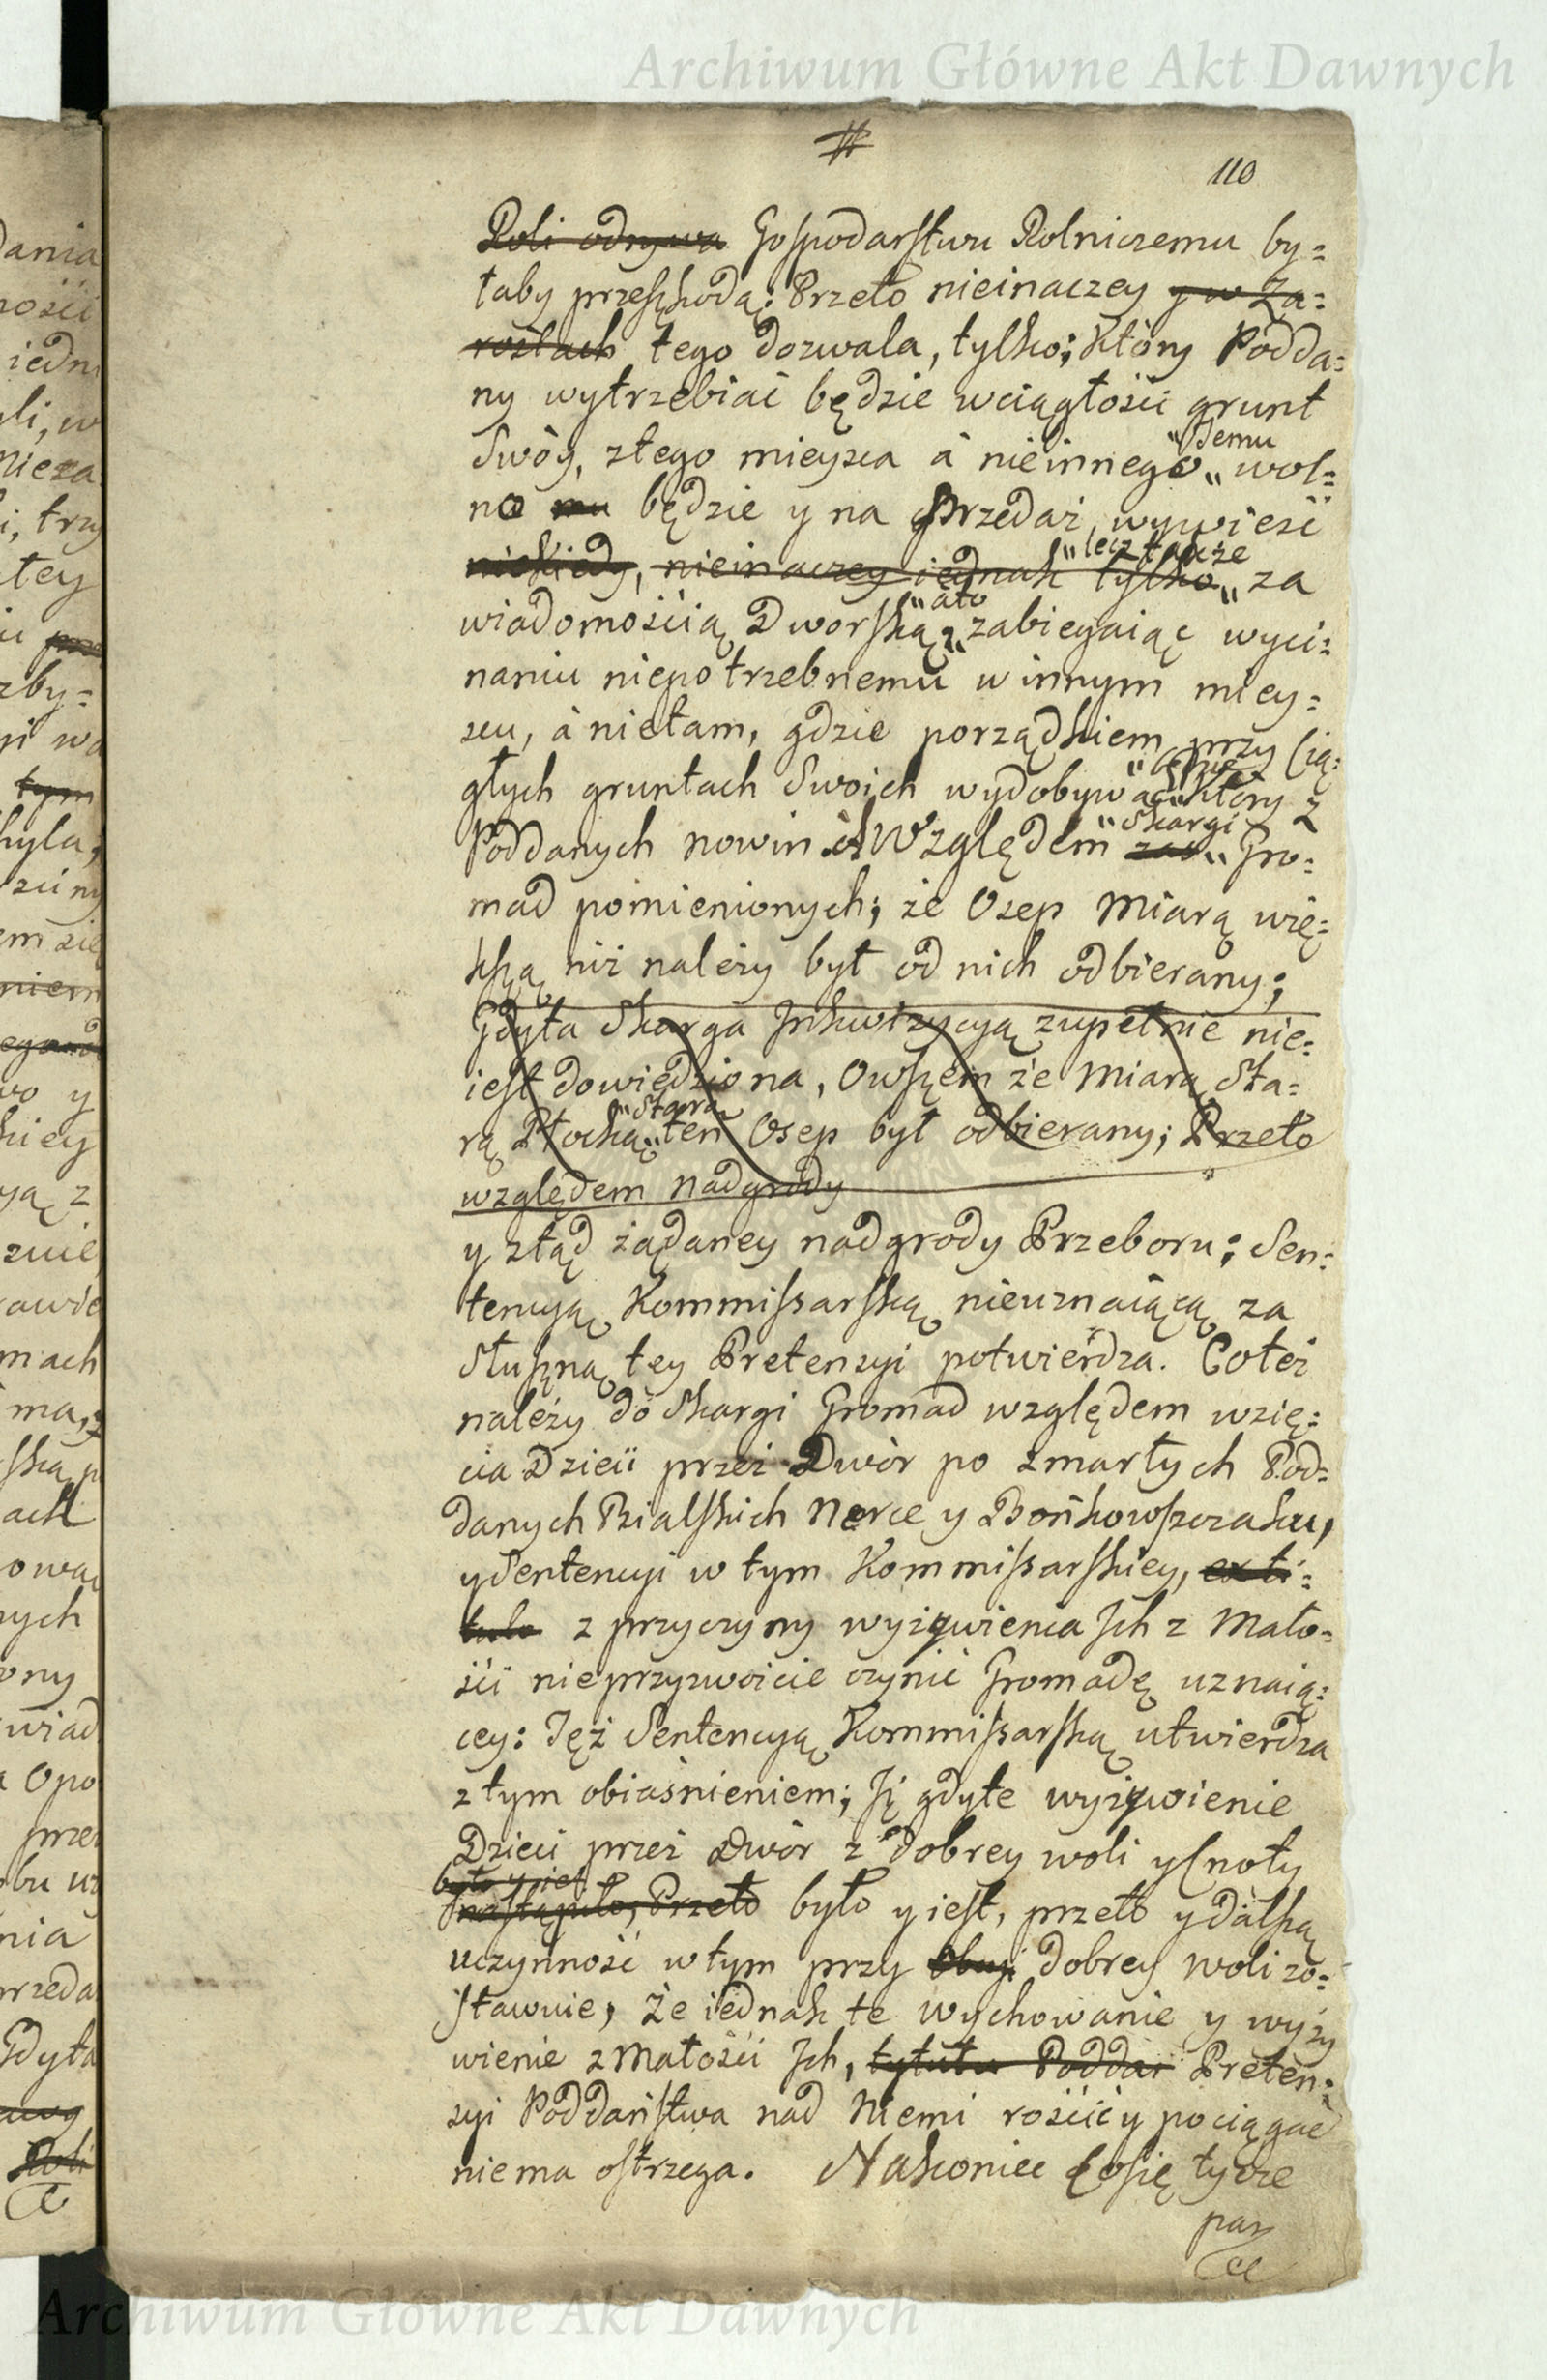 Archiwum Główne Akt Dawnych
#
110
Roli odrywa Gospodarstwu Rolniczemu by=
łaby przeszkodą; Przeto nieinaczey y w Za=
rosłach tego dozwala, tylko; Który Podda=
ny wytrzebiać będzie wciągłości grunt
Swóy, ztego mieysca à nieinnego „temu„ wol=
no mu będzie y na Przedaż wywieść
niekiedy, nieinaczey iednak tylko „lecz także„ za
wiadomością Dworską, „àto„ zabiegaiąc wyci=
naniu niepotrzebnemu w innym miey=
scu, à nietam, gdzie porządkiem przy Cią=
głych gruntach Swoich wydobywać „będzie„ który z
Poddanych nowin. Względem zaś „Skargi„ Gro=
mad pomienionych; że Osep Miarą wię=
kszą niż należy był od nich odbierany;
Gdyta Skarga Inkwizycyą zupełnie nie=
iest dowiedziona, Owszem że Miarą Sta=
rą Płocką „Starą„ ten Osep był odbierany; Przeto
względem Nadgrody
y ztąd żądaney nadgrody Przeboru; Sen=
tencyą Kommissarską nieuznaiącą za
Słuszną tey Pretensyi potwierdza. Coteż
należy do Skargi Gromad względem wzię=
cia Dzieci przez Dwór po zmarłych Pod=
danych Bialskich Nerce y Bońkowszczaku,
y Sentencyi w tym Kommissarskiey, ex ti=
tulo z przyczyny wyżywienia Ich z Mało=
ści nieprzyzwoicie czynić Gromadę uznaią=
cey: Tęż Sentencyą Kommissarską utwierdza
z tym obiaśnieniem; Iż gdyte wyżywienie
Dzieci przez Dwór z dobrey woli y Cnoty
było y iest
nastąpiło, Przeto było y iest, przeto y dalszą
uczynność w tym przy dobrey woli zo=
stawuie, Że iednak te wychowanie y wyży
wienie z Małości Ich, tytułu Poddań Preten=
syi Poddaństwa nad Niemi rościć y pociągać
niema ostrzega. Nakoniec Cosię tycze
par
Archiwum Główne Akt Dawnych